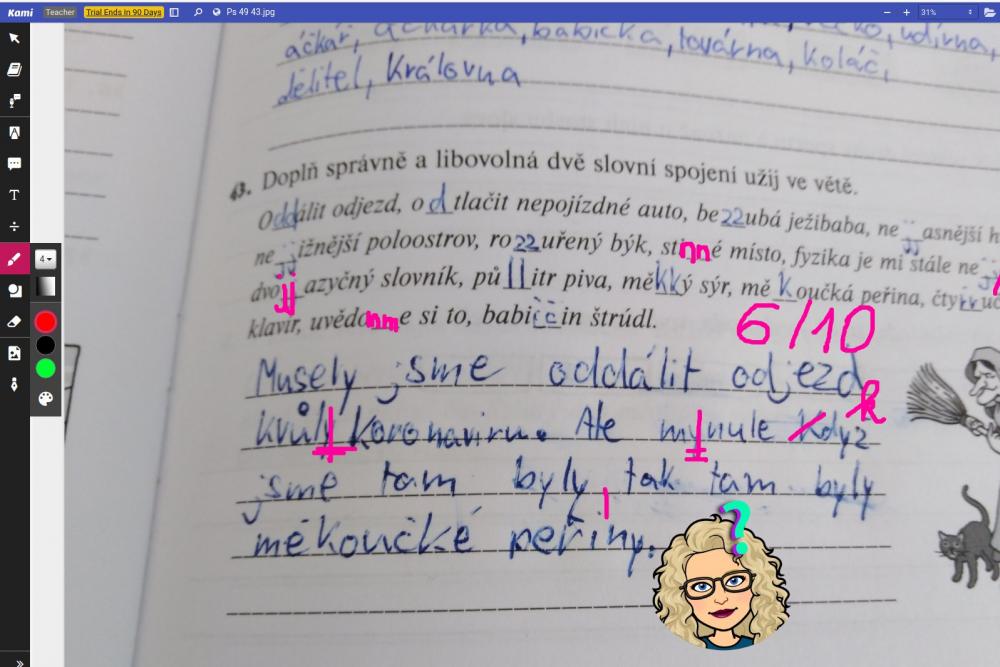 Kami Teacher Trial Ends In 90 Days Ps 49 43.jpg 31%
áčkař, babička, továrna, koláč,
dělitel, Královna
43. Doplň správně a libovolná dvě slovní spojení užij ve větě.
Oddálit odjezd, od tlačit nepojízdné auto, bezzubá ježibaba, nejjasnější h
nejjižnější poloostrov, rozzuřený býk, stinné místo, fyzika je mi stále ne
dvojjazyčný slovník, půllitr piva, měkký sýr, měkoučká peřina, čtyř
klavír, uvědomme si to, babiččin štrúdl.
6/10
Musely jsme oddálit odjezd
kvůly Koronaviru. Ale mynule Když k
jsme tam byly, tak tam byly
měkoučké peřiny.
?
4
T